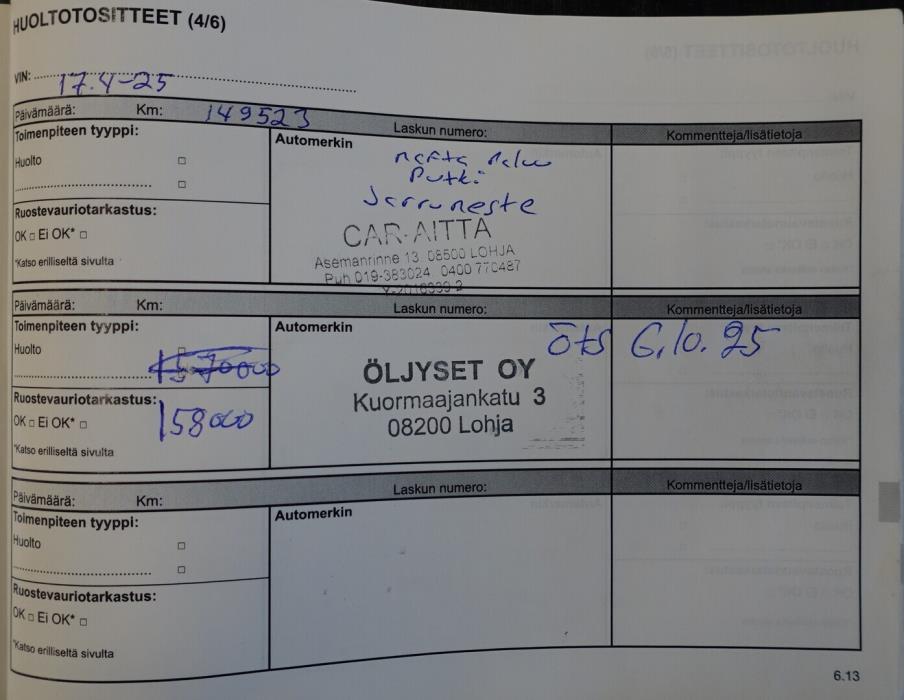 HUOLTOTOSITTEET (4/6)
VIN: 17.4-25
Päivämäärä: Km: 149523 Laskun numero: Kommentteja/lisätietoja
Toimenpiteen tyyppi:
Automerkin
Huolto
Putki
Jarruneste
Ruostevauriotarkastus:
OK Ei OK*
*Katso erilliseltä sivulta
CAR-AITTA
Asemanrinne 13 08500 LOHJA
Puh 019-383024 0400 770487
Päivämäärä: Km: Laskun numero: Kommentteja/lisätietoja
Toimenpiteen tyyppi:
Automerkin
öts 6.10.25
Huolto
Ruostevauriotarkastus:
158000
OK Ei OK*
*Katso erilliseltä sivulta
ÖLJYSET OY
Kuormaajankatu 3
08200 Lohja
Päivämäärä: Km: Laskun numero: Kommentteja/lisätietoja
Toimenpiteen tyyppi:
Automerkin
Huolto
Ruostevauriotarkastus:
OK Ei OK*
*Katso erilliseltä sivulta
6.13